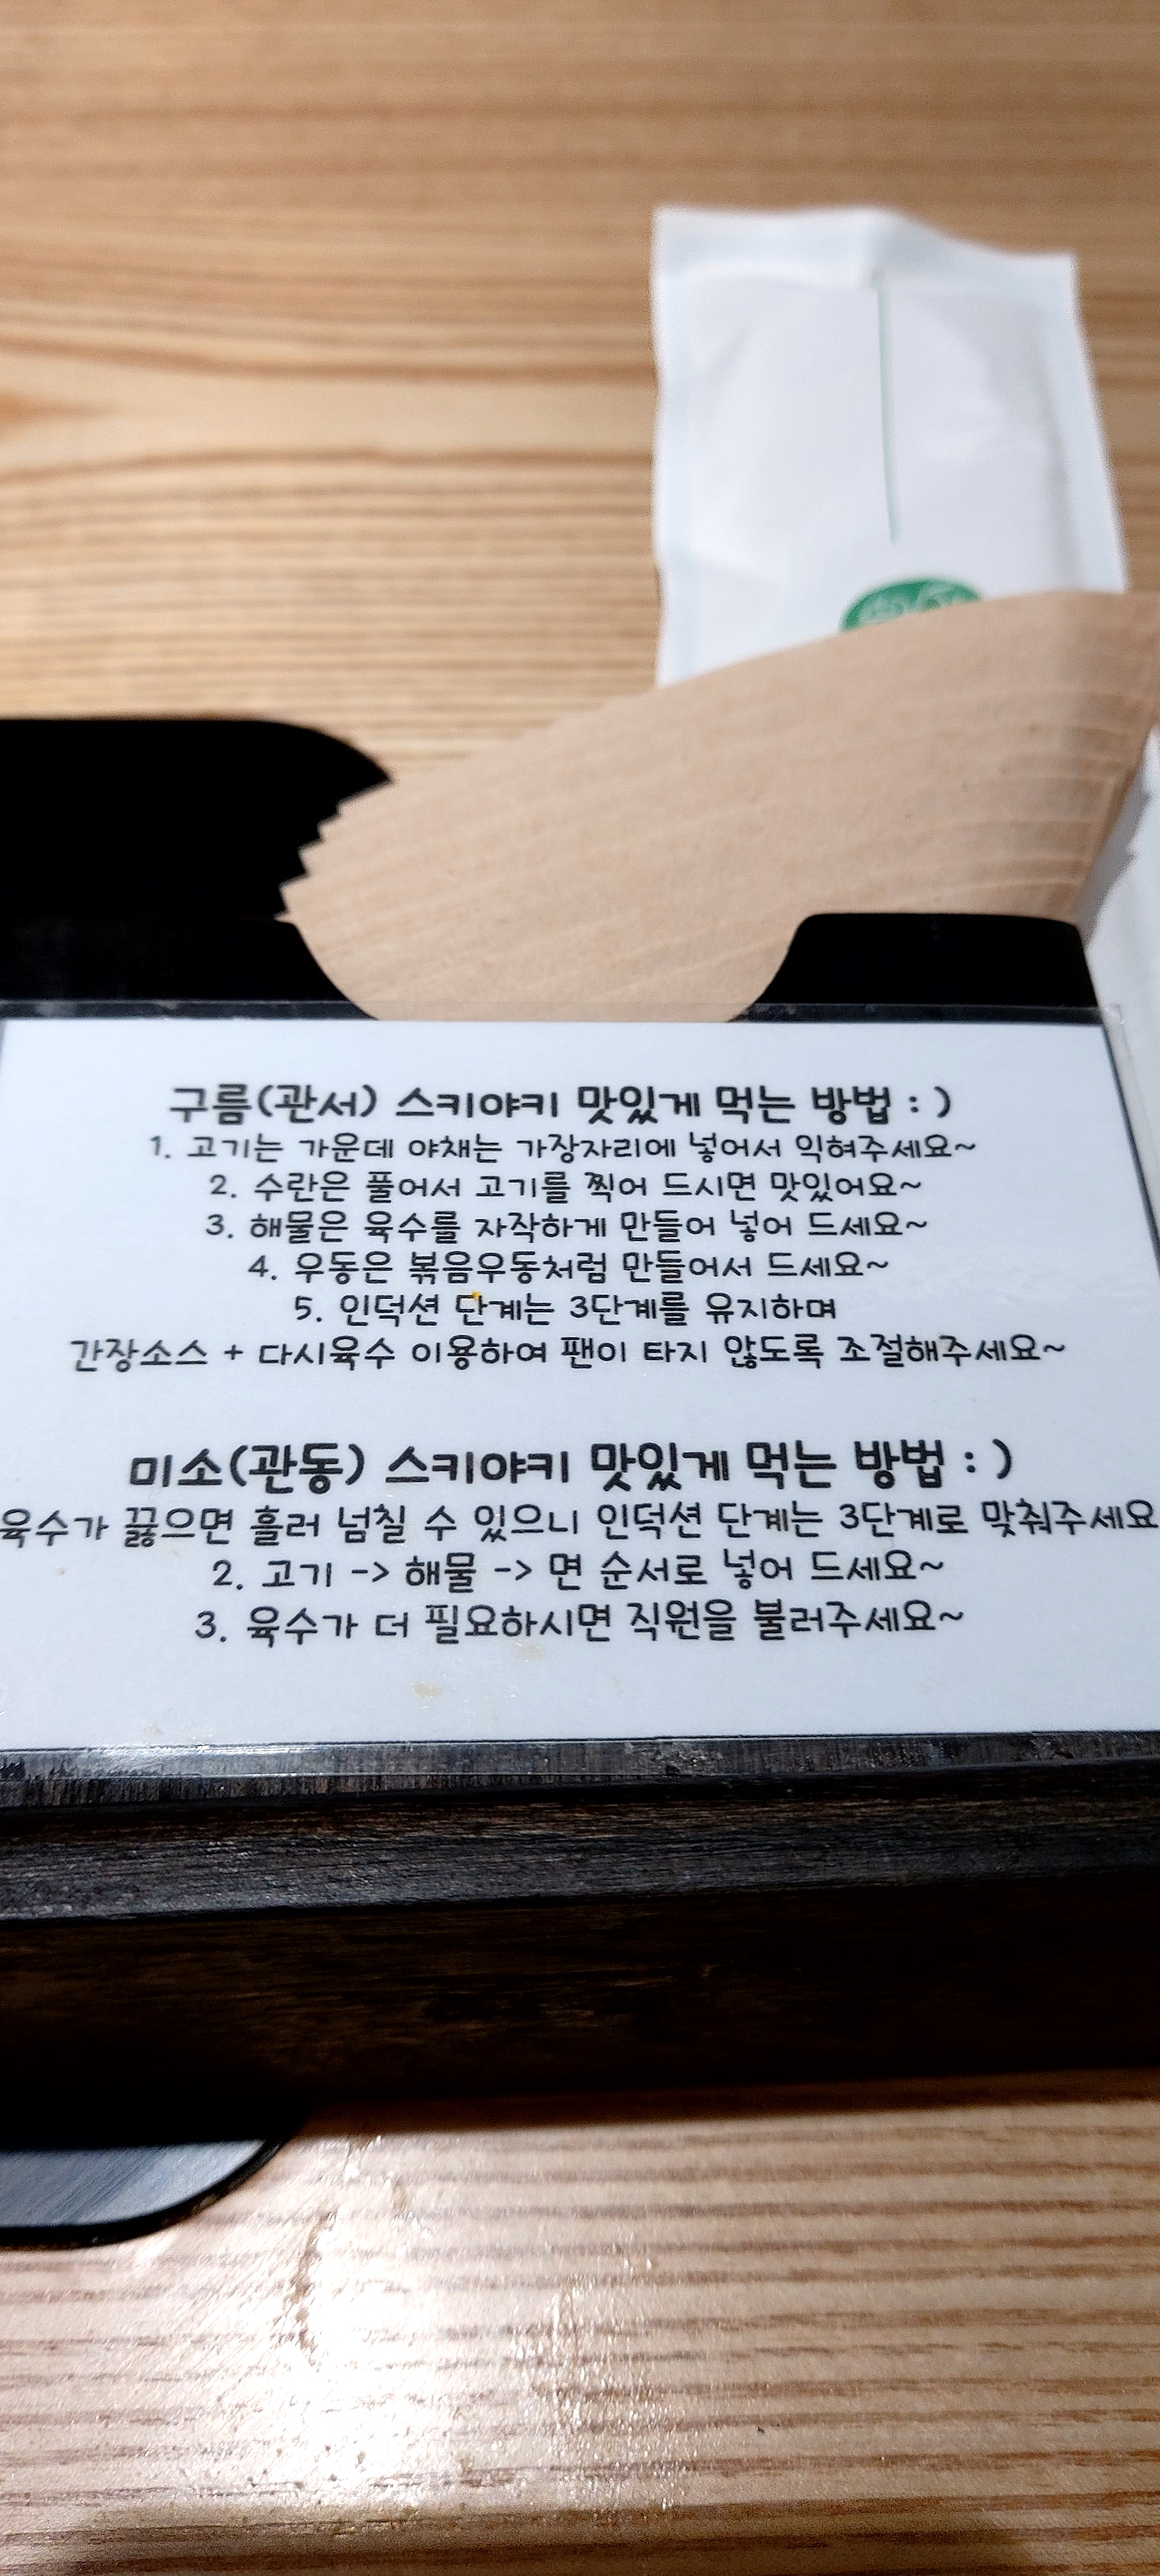 구름(관서) 스키야키 맛있게 먹는 방법 : )
1. 고기는 가운데 야채는 가장자리에 넣어서 익혀주세요~
2. 수란은 풀어서 고기를 찍어 드시면 맛있어요~
3. 해물은 육수를 자작하게 만들어 넣어 드세요~
4. 우동은 볶음우동처럼 만들어서 드세요~
5. 인덕션 단계는 3단계를 유지하며
간장소스 + 다시육수 이용하여 팬이 타지 않도록 조절해주세요~
미소(관동) 스키야키 맛있게 먹는 방법 : )
육수가 끓으면 흘러 넘칠 수 있으니 인덕션 단계는 3단계로 맞춰주세요
2. 고기 -> 해물 -> 면 순서로 넣어 드세요~
3. 육수가 더 필요하시면 직원을 불러주세요~